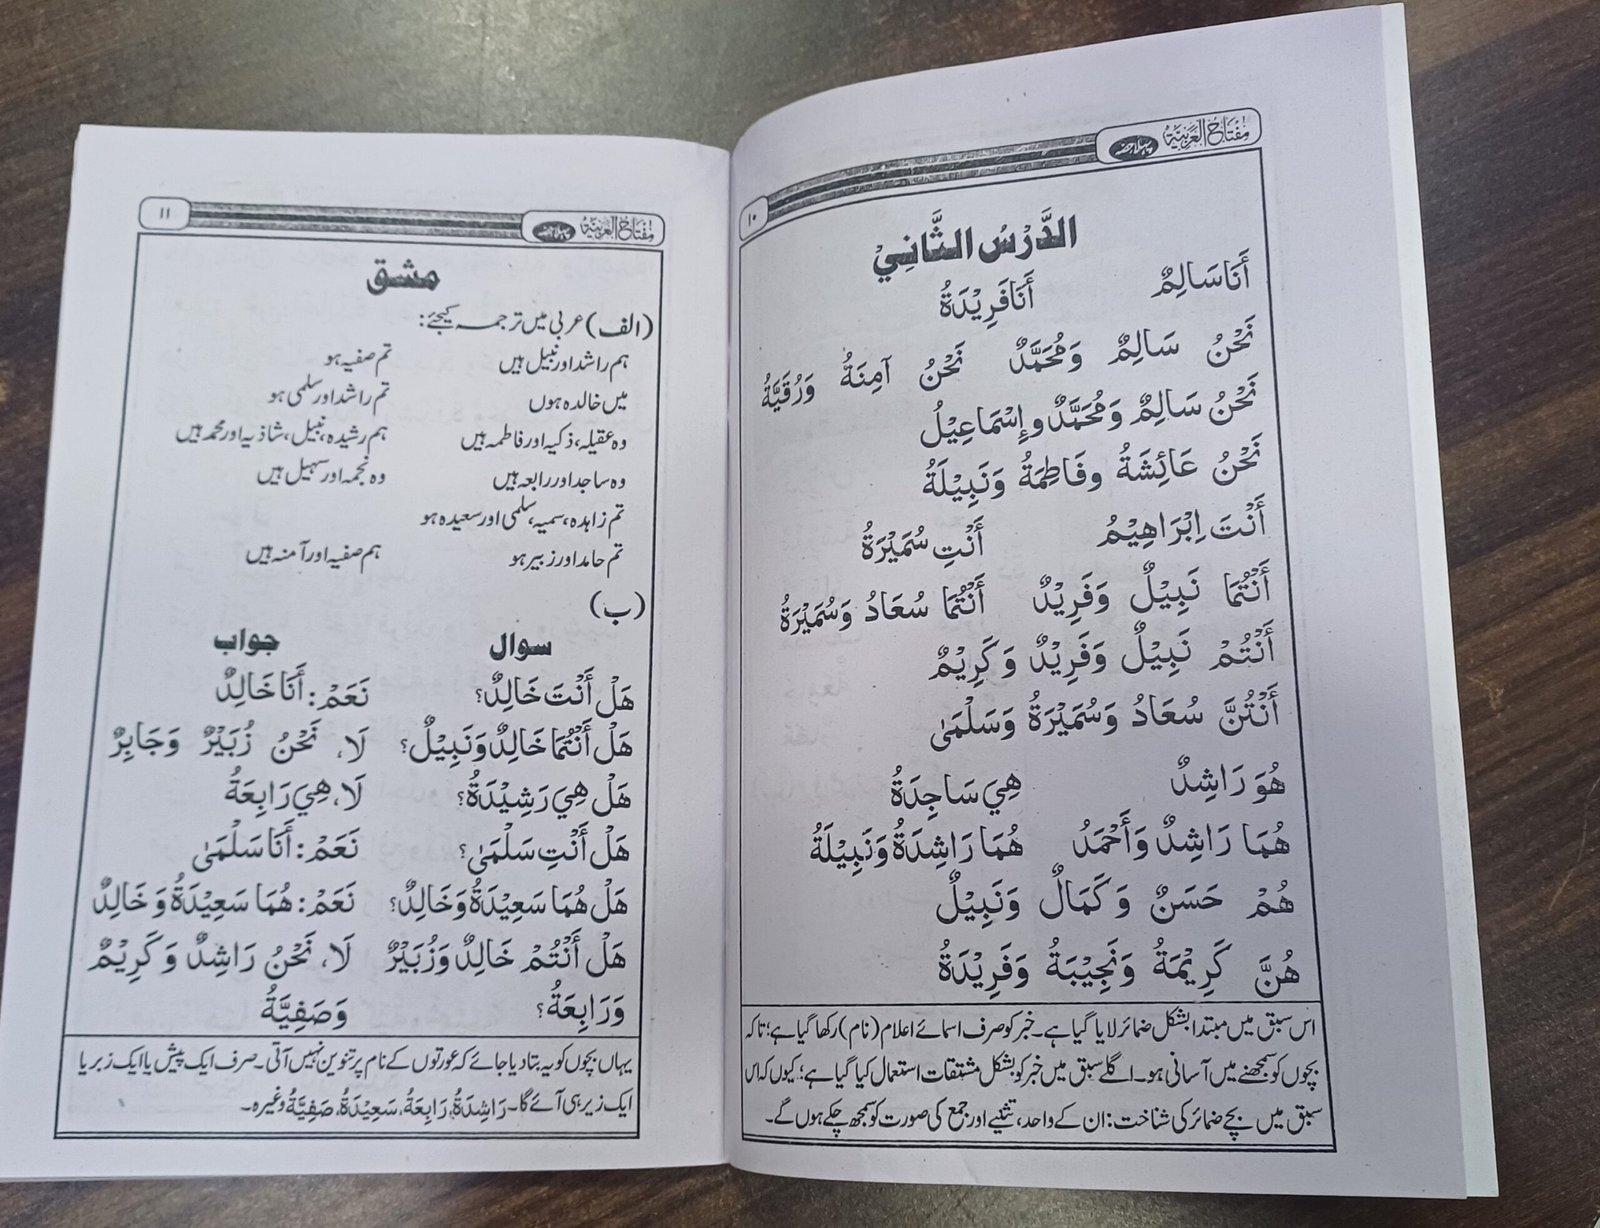 مِفْتَاحُ الْعَرَبِيَّة پہلا حصہ ۱۰
اَلدَّرْسُ الثَّانِيْ
أَنَا سَالِمٌ أَنَا فَرِيْدَةُ
نَحْنُ سَالِمٌ وَمُحَمَّدٌ نَحْنُ آمِنَةُ وَرُقَيَّةُ
نَحْنُ سَالِمٌ وَمُحَمَّدٌ وإِسْمَاعِيْلُ
نَحْنُ عَائِشَةُ وفَاطِمَةُ وَنَبِيْلَةُ
أَنْتَ اِبْرَاهِيْمُ أَنْتِ سُمَيْرَةُ
أَنْتُمَا نَبِيْلٌ وَفَرِيْدٌ أَنْتُمَا سُعَادُ وَسُمَيْرَةُ
أَنْتُمْ نَبِيْلٌ وَفَرِيْدٌ وَكَرِيْمٌ
أَنْتُنَّ سُعَادُ وَسُمَيْرَةُ وَسَلْمَىٰ
هُوَ رَاشِدٌ هِيَ سَاجِدَةُ
هُمَا رَاشِدٌ وَأَحْمَدُ هُمَا رَاشِدَةُ وَنَبِيْلَةُ
هُمْ حَسَنٌ وَكَمَالٌ وَنَبِيْلٌ
هُنَّ كَرِيْمَةُ وَنَجِيْبَةُ وَفَرِيْدَةُ
اس سبق میں مبتدا بشکل ضمائر لایا گیا ہے۔ خبر کو صرف اسمائے اعلام (نام) رکھا گیا ہے؛ تاکہ
بچوں کو سمجھنے میں آسانی ہو۔ اگلے سبق میں خبر کو بشکل مشتقات استعمال کیا گیا ہے؛ کیوں کہ اس
سبق میں بچے ضمائر کی شناخت: ان کے واحد، تثنیے اور جمع کی صورت کو سمجھ چکے ہوں گے۔
مِفْتَاحُ الْعَرَبِيَّة پہلا حصہ ۱۱
مشق
(الف) عربی میں ترجمہ کیجئے:
ہم راشد اور نبیل ہیں تم صفیہ ہو
میں خالدہ ہوں تم راشد اور سلمی ہو
وہ عقیلہ، ذکیہ اور فاطمہ ہیں ہم رشیدہ، نبیل، شاذیہ اور محمد ہیں
وہ ساجد اور رابعہ ہیں وہ نجمہ اور سہیل ہیں
تم زاہدہ، سمیہ، سلمی اور سعیدہ ہو
تم حامد اور زبیر ہو ہم صفیہ اور آمنہ ہیں
(ب)
سوال جواب
هَلْ أَنْتَ خَالِدٌ؟ نَعَمْ: أَنَا خَالِدٌ
هَلْ أَنْتُمَا خَالِدٌ وَنَبِيْلٌ؟ لَا، نَحْنُ زُبَيْرٌ وَجَابِرٌ
هَلْ هِيَ رَشِيْدَةُ؟ لَا، هِيَ رَابِعَةُ
هَلْ أَنْتِ سَلْمَىٰ؟ نَعَمْ: أَنَا سَلْمَىٰ
هَلْ هُمَا سَعِيْدَةُ وَخَالِدٌ؟ نَعَمْ: هُمَا سَعِيْدَةُ وَخَالِدٌ
هَلْ أَنْتُمْ خَالِدٌ وَزُبَيْرٌ لَا، نَحْنُ رَاشِدٌ وَكَرِيْمٌ
وَرَابِعَةُ؟ وَصَفِيَّةُ
یہاں بچوں کو یہ بتا دیا جائے کہ عورتوں کے نام پر تنوین نہیں آتی۔ صرف ایک پیش یا ایک زبر یا
ایک زیر ہی آئے گا۔ رَاشِدَةُ، رَابِعَةُ، سَعِيْدَةُ، صَفِيَّةُ وغیرہ۔